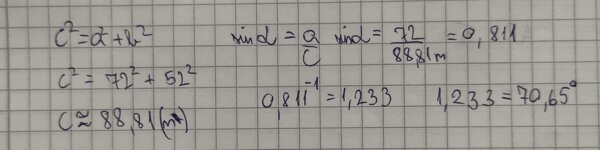 c² = a² + b²
c² = 72² + 52²
c ≈ 88,81(m)
sin α = a/c sin α = 72/88,81m = 0,811
0,811⁻¹ = 1,233 1,233 = 70,65°